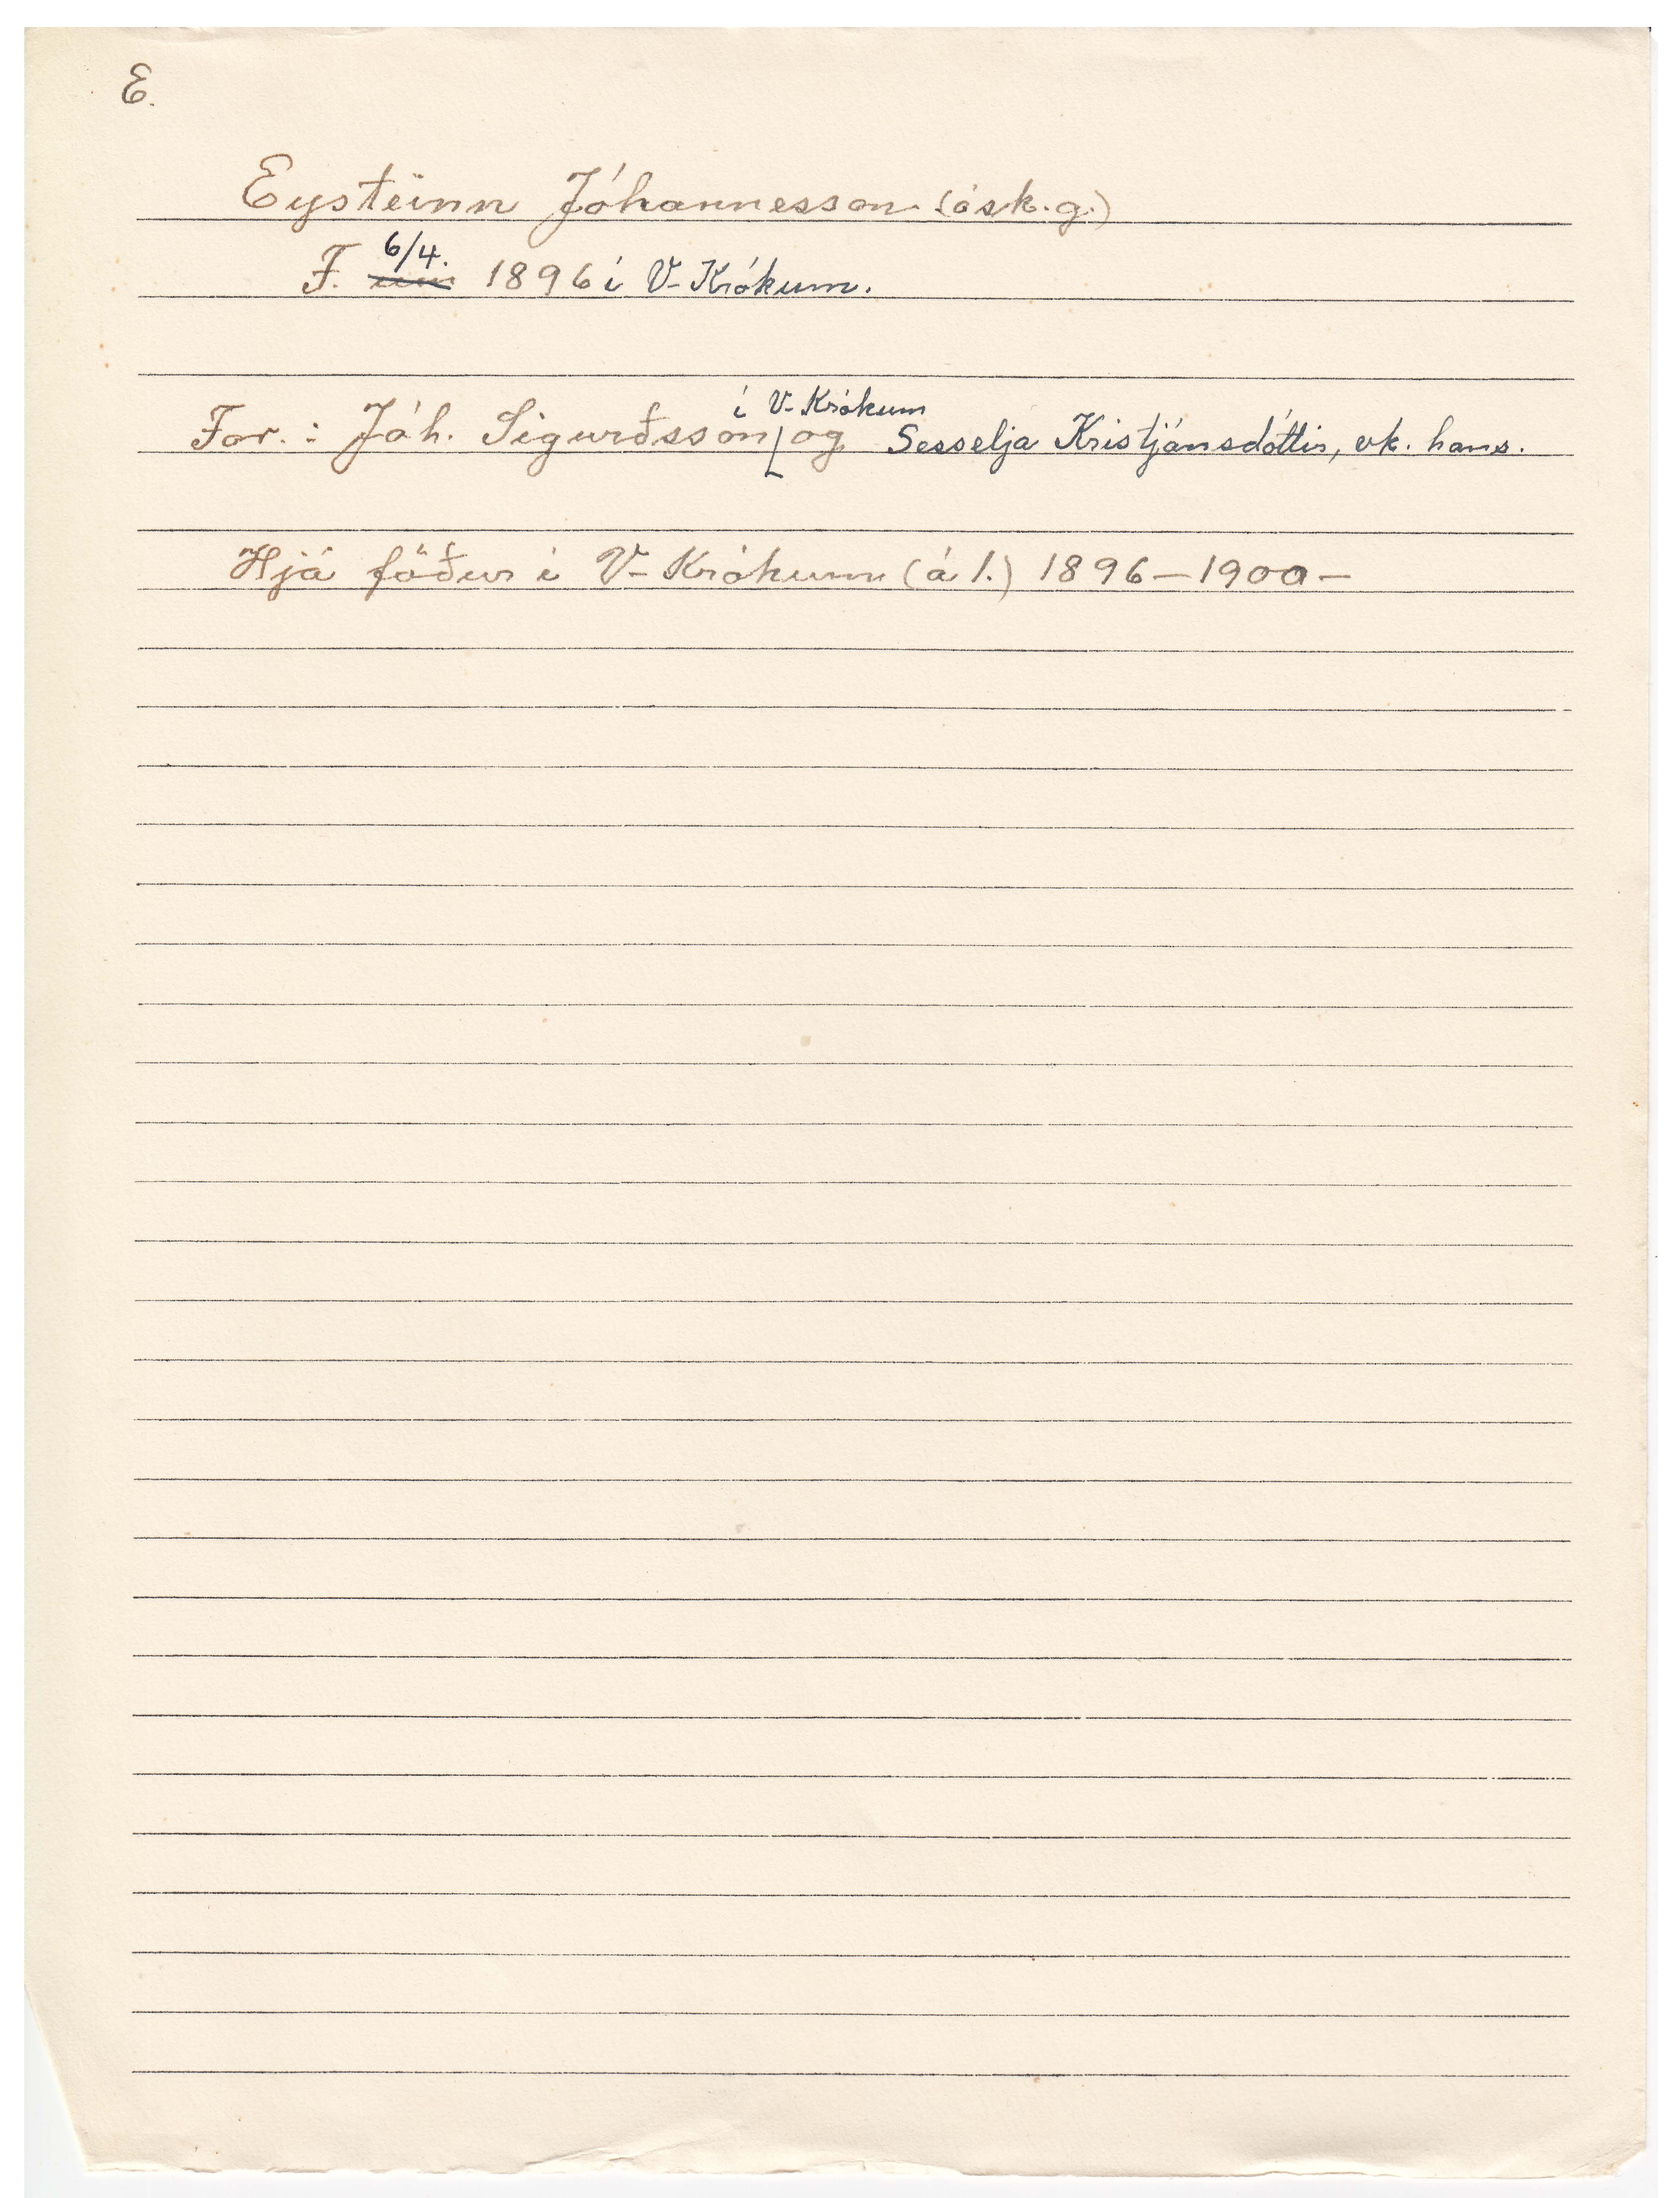 E.
Eysteinn Jóhannesson (ósk.g.)
F. 6/4. 1896 í V-Krókum.
í V-Krókum
For.: Jóh. Sigurðsson og Sesselja Kristjánsdóttir, vk. hans.
Hjá föður í V-Krókum (á l.) 1896-1900-